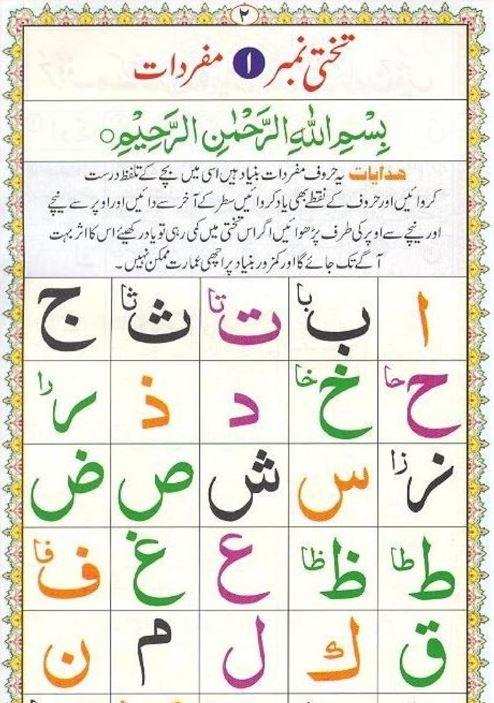 ٢
تختی نمبر ۱ مفردات
بِسْمِ اللهِ الرَّحْمٰنِ الرَّحِيْمِ
ھدایات یہ حروف مفردات بنیاد ہیں اسی میں بچے کے تلفظ درست
کروائیں اور حروف کے نقطے بھی یاد کروائیں سطر کے آخر سے دائیں اور اوپر سے نیچے
اور نیچے سے اوپر کی طرف پڑھوائیں اگر اس تختی میں کمی رہی تو یاد رکھیئے اس کا اثر بہت
آگے تک جائے گا اور کمزور بنیاد پر اچھی عمارت ممکن نہیں۔
ا ب با ت تا ث ثا ج
ح حا خ خا د ذ ر را
ز زا س ش ص ض
ط طا ظ ظا ع غ ف فا
ق ك ل م ن